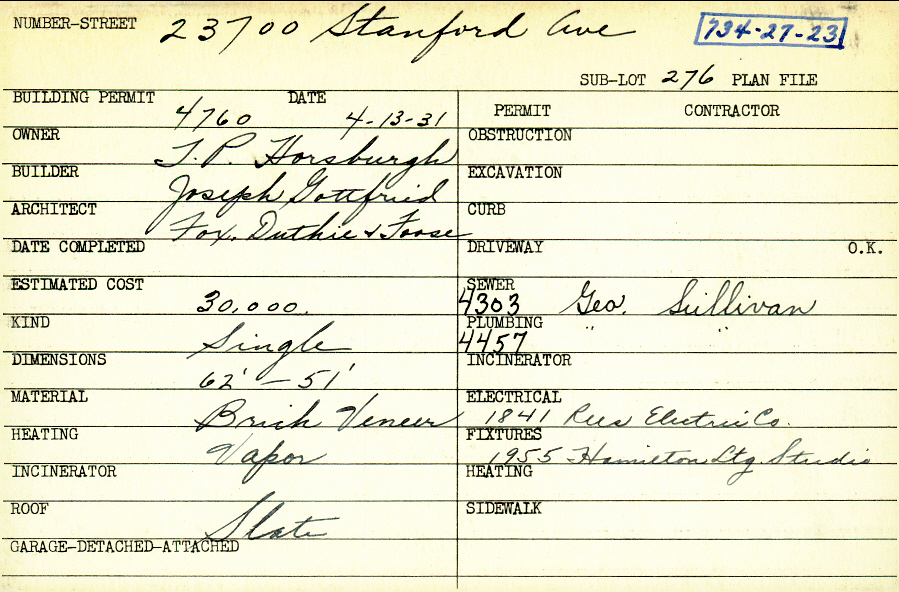 NUMBER-STREET 23700 Stanford Ave 734-27-23
SUB-LOT 276 PLAN FILE
BUILDING PERMIT 4760 DATE 4-13-31
PERMIT CONTRACTOR
OWNER T. P. Horsburgh
OBSTRUCTION
BUILDER Joseph Gottfried
EXCAVATION
ARCHITECT Fox, Duthie & Foose
CURB
DATE COMPLETED
DRIVEWAY O.K.
ESTIMATED COST 30,000.
SEWER 4303 Geo. Sullivan
KIND Single
PLUMBING 4457 " "
DIMENSIONS 62' - 51'
INCINERATOR
MATERIAL Brick Veneer
ELECTRICAL 1841 Rees Electric Co.
HEATING Vapor
FIXTURES 1955 Hamilton Ltg. Studio
INCINERATOR
HEATING
ROOF Slate
SIDEWALK
GARAGE-DETACHED-ATTACHED